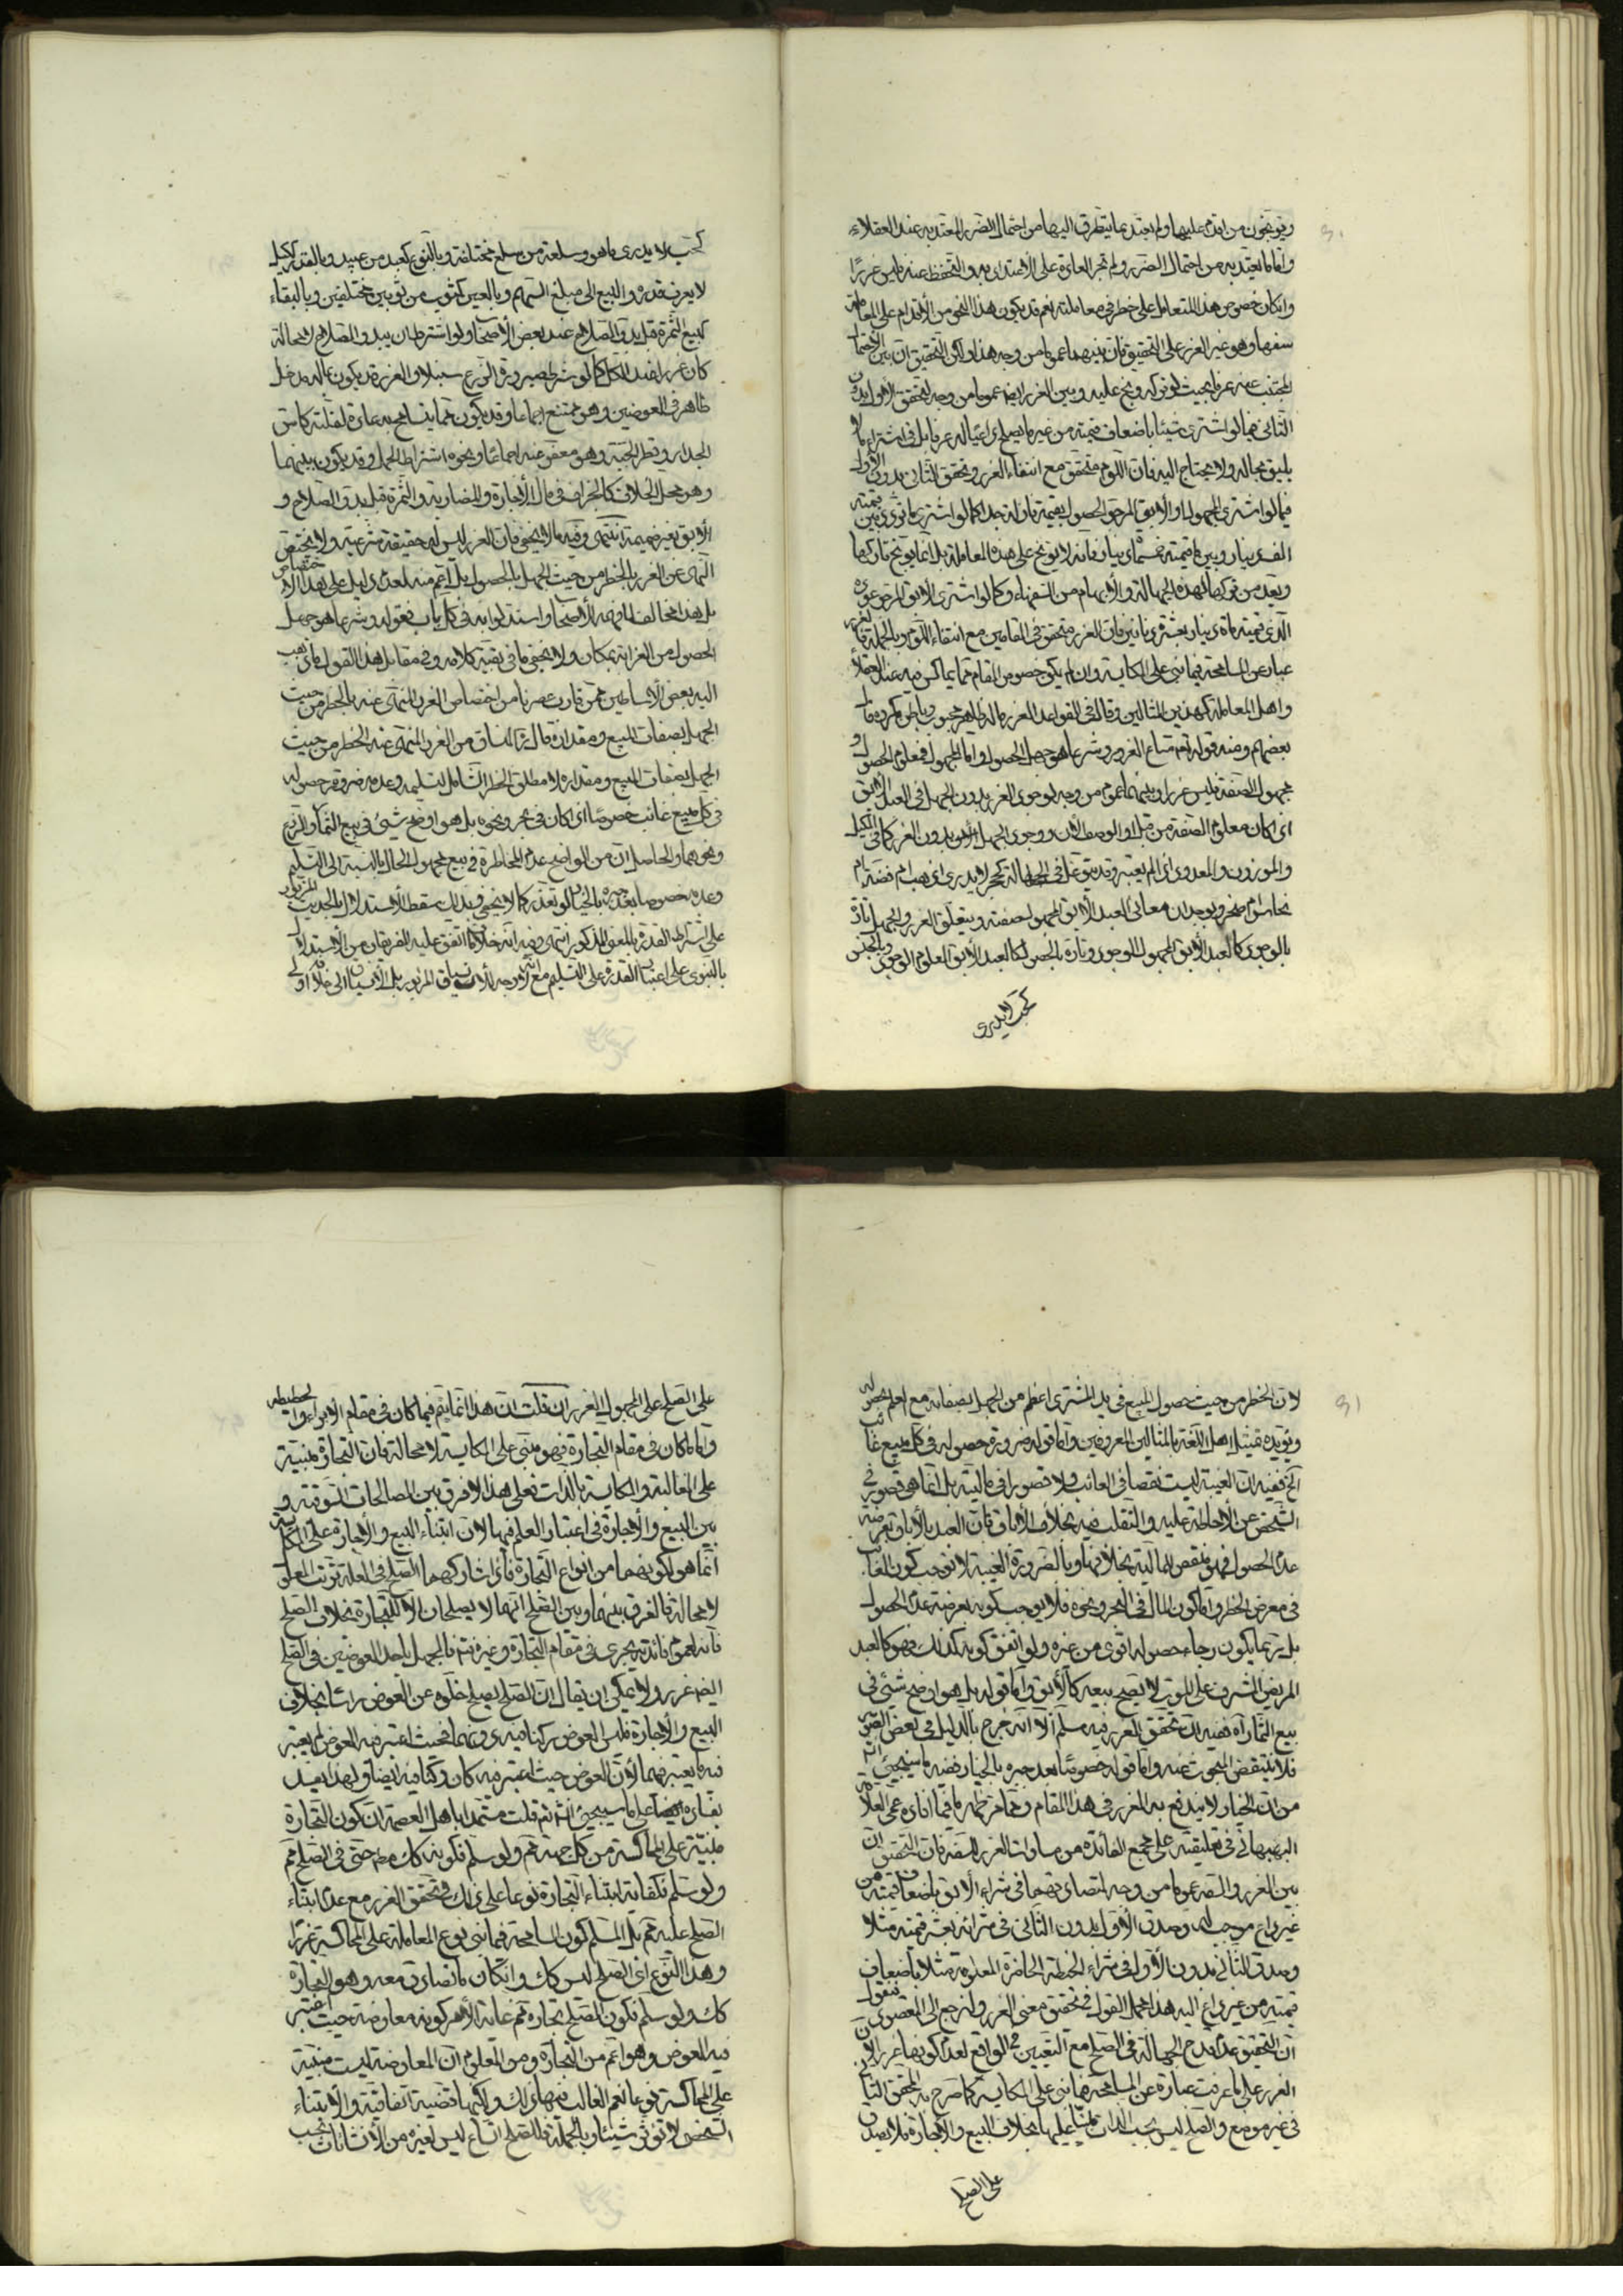 ويوبخون من اقدم عليها ولم يعتد بما يتطرق اليها من احتمال الضرر المعتد به عند العقلاء
واما ما يعتد به من احتمال الضرر ولم تجر العادة على الاعتداد به والتحفظ عنه فليس غررا
وان كان خصوص هذا المتعامل على خطر في معاملته نعم قد يكون هذا النحو من الأقدام على المعاملة
سفها وهو غير الغرر على التحقيق فان بينهما عموما من وجه هذا ولكن التحقيق ان بين الاحتمال
المجتنب عنه عرفا بحيث لو تركه وبخ عليه وبين الغرر ايضا عموما من وجه لتحقق الاول بدون
الثاني فيما لو اشترى شيئا باضعاف قيمته من غير ما يصلح داعيا له عرفا بل في اشتراء ما لا
يليق بحاله ولا يحتاج اليه فان اللوم متحقق مع انتفاء الغرر وتحقق الثاني بدون الاول
فيما لو اشترى المجهول او الابق المرجو الحصول بقيمة نازلة جدا كما لو اشترى ما تردد بين قيمته
الف دينار وبين ما قيمته خمسة دينار فانه لا يوبخ على هذه المعاملة بل انما يوبخ تاركها
ويعد من تركها لهذه الجهالة والابهام من السفهاء وكما لو اشترى الابق المرجو عوده
الذي قيمته مأة دينار بعشرة دنانير فان الغرر متحقق في المقامين مع انتفاء اللوم وبالجملة فالغرر
عبارة عن المسامحة فيما بني على المكايسة وان لم يكن خصوص المقام مما يماكس فيه عند العقلاء
واهل المعاملة كهذين المثالين وقال في القواعد الغرر ماله ظاهر محبوب وباطن مكروه قال
بعضهم ومنه قوله تعالى متاع الغرور وشرعا هو جهل الحصول واما المجهول فمعلوم الحصول و
مجهول الصفة فليس غررا وبينهما عموم من وجه لوجود الغرر بدون الجهل في العبد الابق
اذا كان معلوم الصفة من قبل او الوصف الان ووجود الجهل بدون الغرر كما في المكيل
والموزون والمعدود اذا لم يعتبر وقد يتوغل في الجهالة كحجر لا يدرى اذهب ام فضة ام
نحاس ام صخر ويوجدان معا في العبد الابق المجهول صفته ويتعلق الغرر والجهل تارة
بالوجود كالعبد الابق المجهول الوجود وتارة بالحصول كالعبد الابق المعلوم الوجود وبالجنس
كحب لا يدرى
كحب لا يدرى ما هو وسلعة من سلع مختلفة وبالنوع كعبد من عبيد وبالقدر ككيل
لا يعرف قدره والبيع الى مبلغ السهم وبالعين كثوب من ثوبين مختلفين وبالبقاء
كبيع الثمرة قبل بدو الصلاح عند بعض الاصحاب ولو اشترط ان يبدو الصلاح لا محالة
كان غررا عند الكل كما لو شرط صيرورة الزرع سنبلا والغرر قد يكون بماله مدخل
ظاهر في العوضين وهو ممتنع اجماعا وقد يكون مما يتسامح به عادة لقلته كاس
الجدار وقطن الجبة وهو معفو عنه اجماعا ونحوه اشتراط الحمل وقد يكون بينهما
وهو محل الخلاف كالجزاف في مال الاجارة والمضاربة والثمرة قبل بدو الصلاح و
الابق بغير ضميمة انتهى وفيه ما لا يخفى فان الغرر ليس له حقيقة شرعية ولا يختص
النهي عن الغرر بالخطر من حيث الجهل بالحصول بل اعم منه لعدم دليل على هذا الاختصاص
بل هذا مخالف لما فهمه الاصحاب واستدلوا به في كل باب فقوله وشرعا هو جهل
الحصول من الغرابة بمكان ولا يخفى ما في بقية كلامه وفي مقابل هذا القول ما ذهب
اليه بعض الاساطين ممن قارب عصرنا من اختصاص الغرر المنهي عنه بالخطر من حيث
الجهل بصفات المبيع ومقداره قال ربما انساق من الغرر المنهي عنه الخطر من حيث
الجهل بصفات المبيع ومقداره لا مطلق الخطر الشامل لتسليمه وعدمه ضرورة حصوله
في كل مبيع غائب خصوصا اذا كان في بحر ونحوه بل هو اوضح شيء في بيع الثمار والزرع
ونحوهما والحاصل ان من الواضح عدم المخاطرة في بيع مجهول الحال بالنسبة الى التسليم
وعدمه خصوصا بعد جبره بالخيار لو تعذر كما لا يخفى وبذلك سقط الاستدلال بالحديث المزبور
على اشتراط القدرة بالمعنى المذكور انتهى وفيه انه خلاف ما اتفق عليه الفريقان من الاستدلال
بالنبوي على اعتبار القدرة على التسليم مع انه لا وجه للانسياق المزبور بل الانسياق الى خلافه اولى
لان الخطر من حيث حصول المبيع في يد المشتري اعظم من الجهل بصفاته مع العلم بحصوله
ويؤيده تمثيل اهل اللغة بالمثالين المعروفين واما قوله ضرورة حصوله في كل مبيع غائب
الخ ففيه ان الغيبة ليست نقصا في الغائب ولا قصورا في ماليته بل انما هي قصور في
الشخص عن الاحاطة عليه والتقلب فيه بخلاف الأباق فان العبد بالأباق بعرضة
عدم الحصول فهو منقص لماليته بخلافها وبالضرورة الغيبة لا توجب كون الغائب
في معرض الخطر واما كون المال في البحر ونحوه فلا يوجب كونه بعرضة عدم الحصول
بل ربما يكون رجاء حصوله اقوى من غيره ولو اتفق كونه كذلك فهو كالعبد
المريض المشرف على الموت لا يصح بيعه كالابق واما قوله بل هو اوضح شيء في
بيع الثمار اه ففيه ان تحقق الغرر فيه مسلم الا انه خرج بالدليل في بعض الصور
فلا ينتقض المبحوث عنه واما قوله خصوصا بعد جبره بالخيار ففيه ما سيجيء انش
من ان الخيار لا يندفع به الغرر في هذا المقام ومما مر ظهر ما فيما افاده عمي العلامة
البهبهاني في تعليقته على مجمع الفائدة من مساوات الغرر للسفه فان التحقيق ان
بين الغرر والسفه عموما من وجه لتصادقهما في شراء الابق باضعاف قيمته من
غير داع موجب له وصدق الاول بدون الثاني في شرائه بعشر قيمته مثلا
وصدق الثاني بدون الأول في شراء الحنطة الحاضرة المعلومة مثلا باضعاف
قيمته من غير داع اليه هذا مجمل القول في تحقيق معنى الغرر ولنرجع الى المقصود فنقول
ان التحقيق عدم قدح الجهالة في الصلح مع التعيين في الواقع لعدم كونها غررا لان
الغرر على ما عرفت عبارة عن المسامحة فيما بني على المكايسة كما صرح به المحقق الثاني
في غير موضع والصلح ليس بحسب الذات مبنيا عليها بخلاف البيع والاجارة فلا يصدق
على الصلح
على الصلح على المجهول الغرر ان قلت ان هذا انما يتم فيما كان في مقام الابراء والحطيطة
واما ما كان في مقام التجارة فهو مبني على المكايسة لا محالة فان التجارة مبنية
على المغالبة والمكايسة بالذات فعلى هذا لا فرق بين المصالحات السوقية و
بين البيع والأجارة في اعتبار العلم فيها لان ابتناء البيع والاجارة على المكايسة
انما هو لكونهما من انواع التجارة فاذا شاركهما الصلح في العلة ترتب المعلول
لا محالة فالفرق بينهما وبين الصلح انهما لا يصلحان الا للتجارة بخلاف الصلح
فانه لعموم فائدته يجري في مقام التجارة وغيره فالجهل باحد العوضين في الصلح
ايضا غرر ولا يمكن ان يقال ان الصلح يصلح خلوه عن العوض راسا بخلاف
البيع والاجارة فليس العوض ركنا فيه دونهما فحيث اعتبر فيه العوض لم يعتبر
فيه ما يعتبر فيهما لأن العوض حيث اعتبر فيه كان ركنا فيه ايضا ولهذا يفسد
بفساده ايضا على ما سيجيء انش ثم قلت مستمدا باهل العصمة ان كون التجارة
مبنية على المماكسة من كل جهة مم ولو سلم فكونه كك مط حتى في الصلح مم
ولو سلم فكفاية ابتناء التجارة نوعا على ذلك في تحقق الغرر مع عدم ابتناء
الصلح عليه مم بل المسلم كون المسامحة فيما بني نوع المعاملة على المماكسة غررا
وهذا النوع اي الصلح ليس كك وان كان ما تصادق معه وهو التجارة
كك ولو سلم فكون الصلح تجارة مم غاية الأمر كونه معاوضة حيث اعتبر
فيه العوض وهو اعم من التجارة ومن المعلوم ان المعاوضة ليست مبنية
على المماكسة نوعا نعم الغالب فيها ذلك ولكنها قضية اتفاقية والابتناء
الشخصي لا يؤثر شيئا وبالجملة فللصلح اتساع ليس لغيره من الأنشائات بحسب